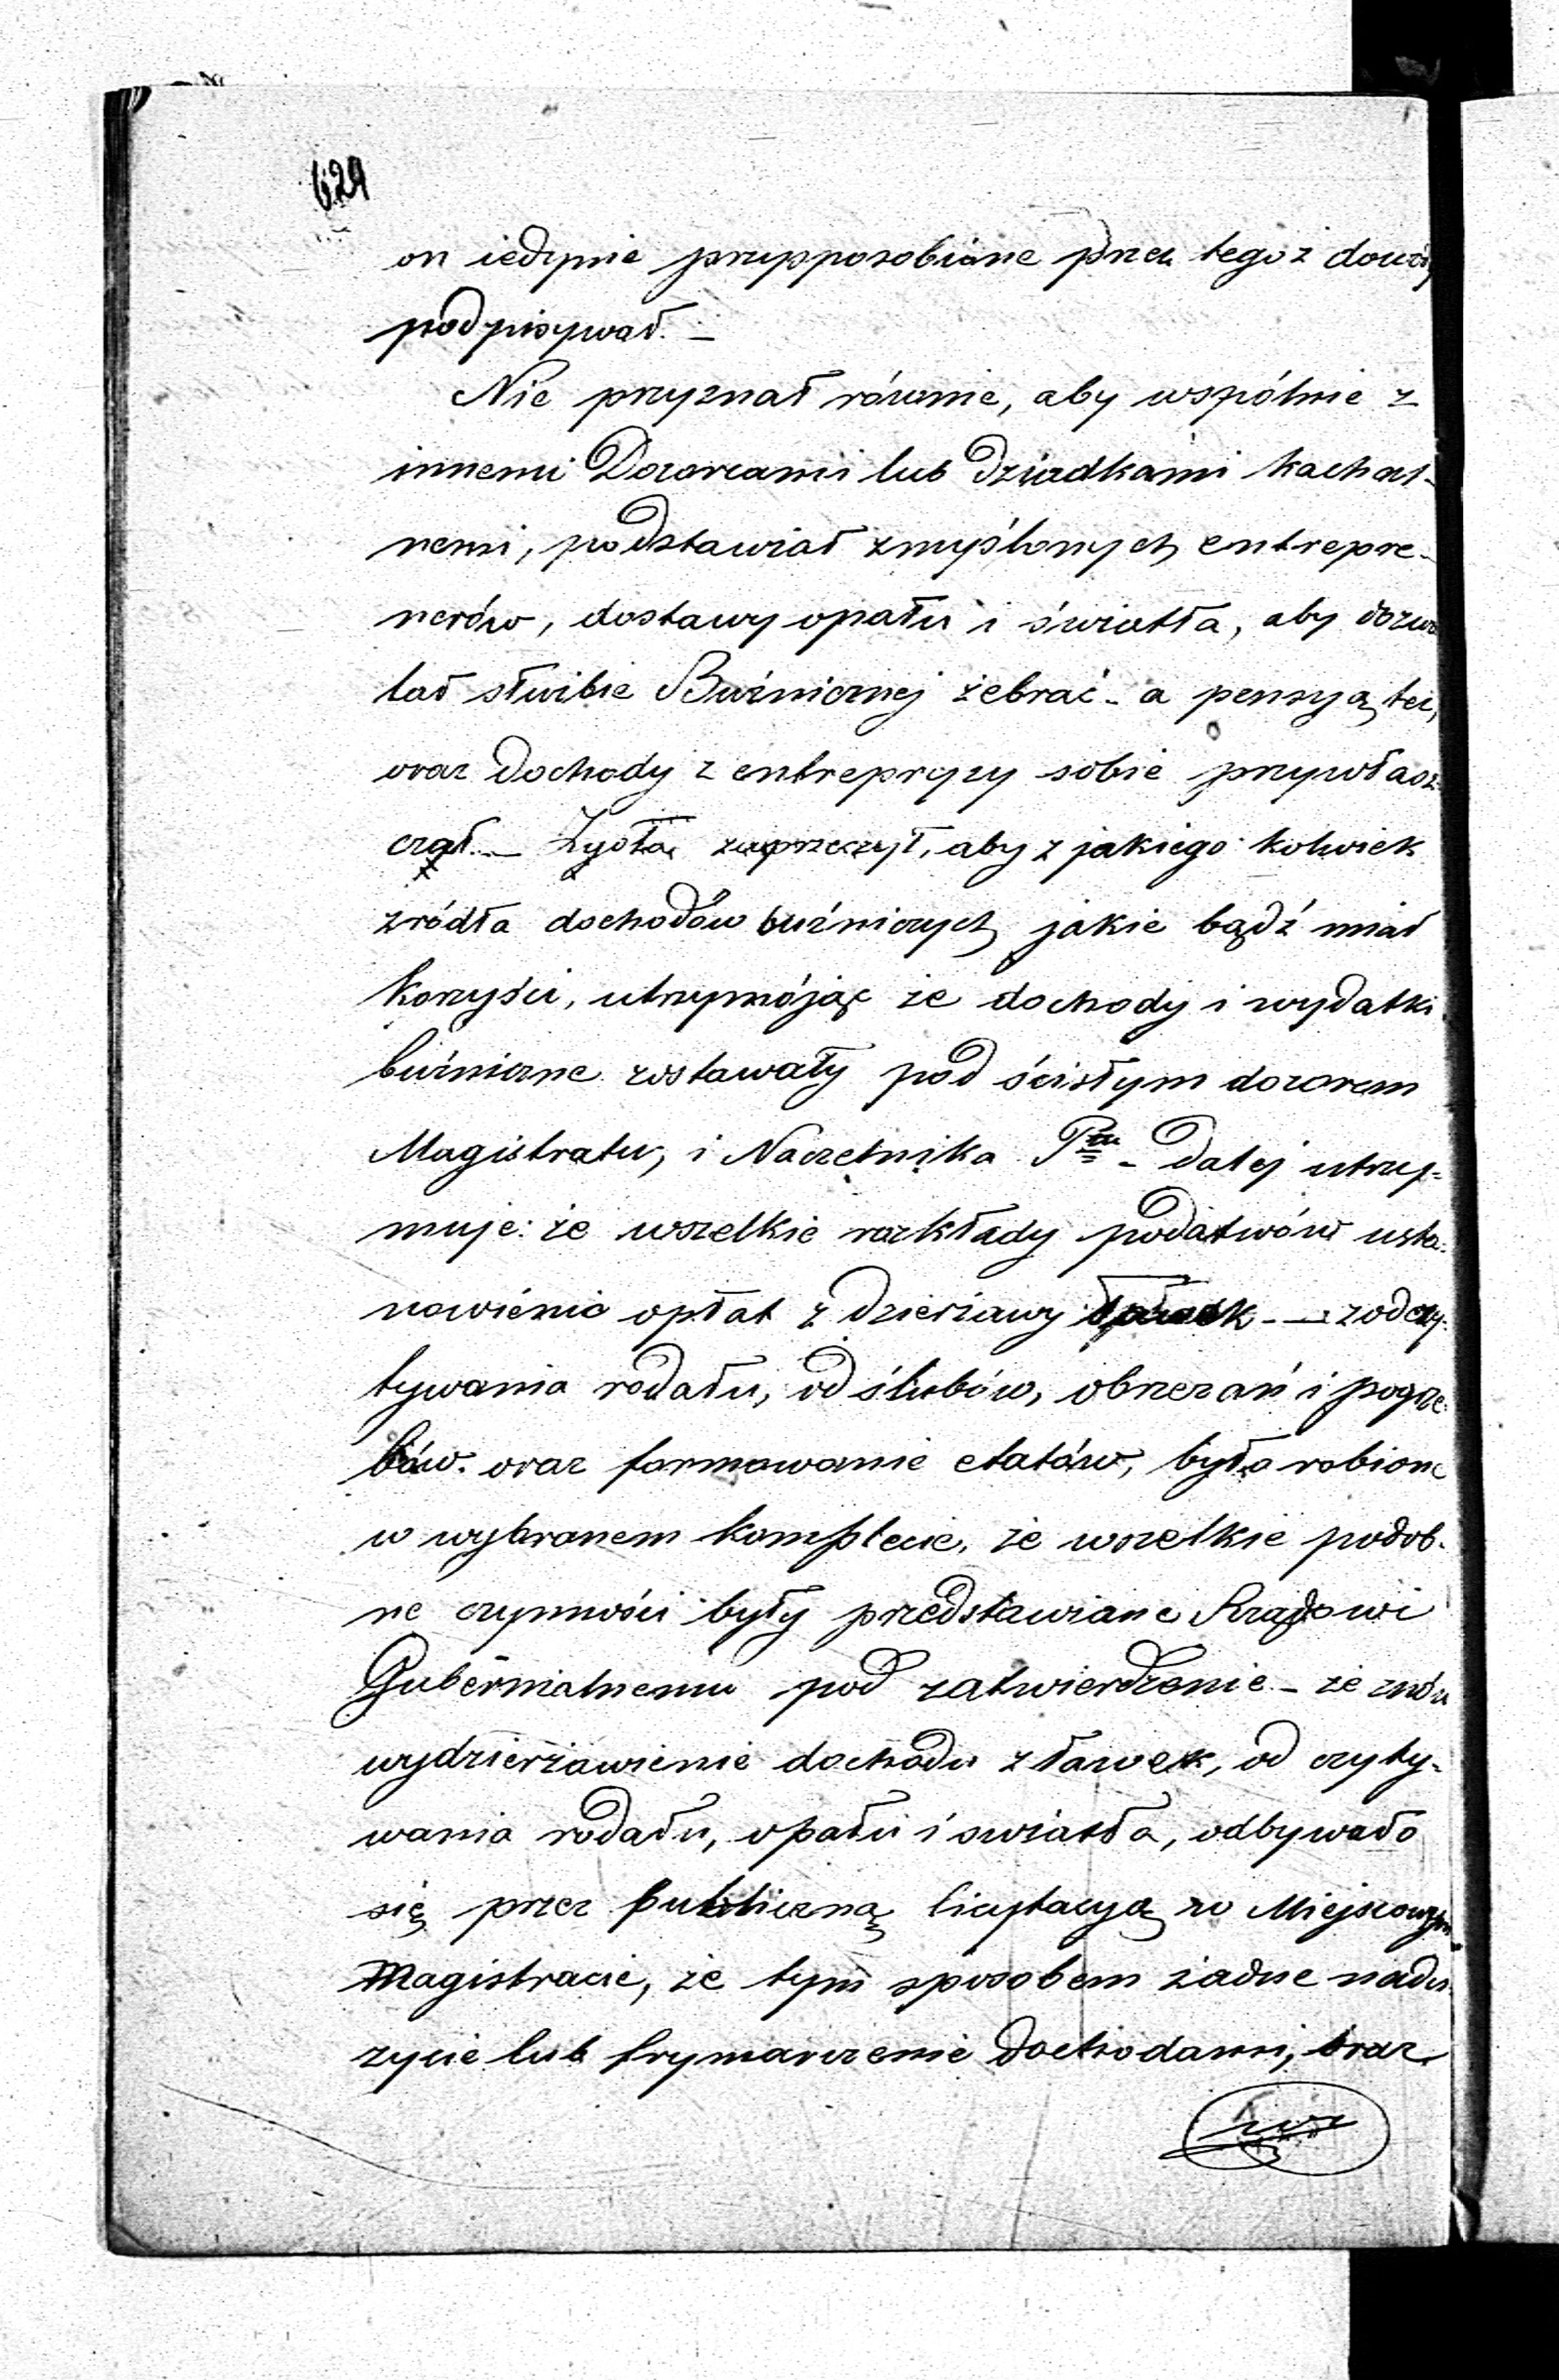 629
on iedynie przypposobione przez tegoż dowody
podpisywał. —
Nie przyznał równie, aby wspólnie z
innemi Dozorcami lub Dziadkami kachal-
nemi, podstawiał zmyślonych entrepre-
nerów, dostawy opału i światła, aby dozwa
lał służbie Buźnicznej żebrać - a pensyą tez,
oraz dochody z entrepryzy sobie przywłasz-
czał. — zaprzeczył, aby z jakiego kolwiek
zródła dochodów buźniczych jakie bądź miał
korzyści, utrzymójąc że dochody i wydatki
buźniczne zostawały pod ścisłym dozorem
Magistratu, i Naczelnika Ptu - Dalej utrzy-
muje: że wszelkie rozkłady podatków usta-
nowienia opłat z dzierżawy — z odczy-
tywania rodału, od ślubów, obrzezań i pogrze-
bów. oraz formowanie etatów, było robione
w wybranem komplecie, że wszelkie podob-
ne czynności były przedstawiane Rządowi
Gubernialnemu pod zatwierdzenie - że znów
wydzierżawienie dochodu z ławek, od czyty-
wania rodału, opału i swiatła, odbywało
się przez publiczną licytacyą w Miejscowym
Magistracie, że tym sposobem żadne nadu-
życie lub frymarczenie dochodami, oraz